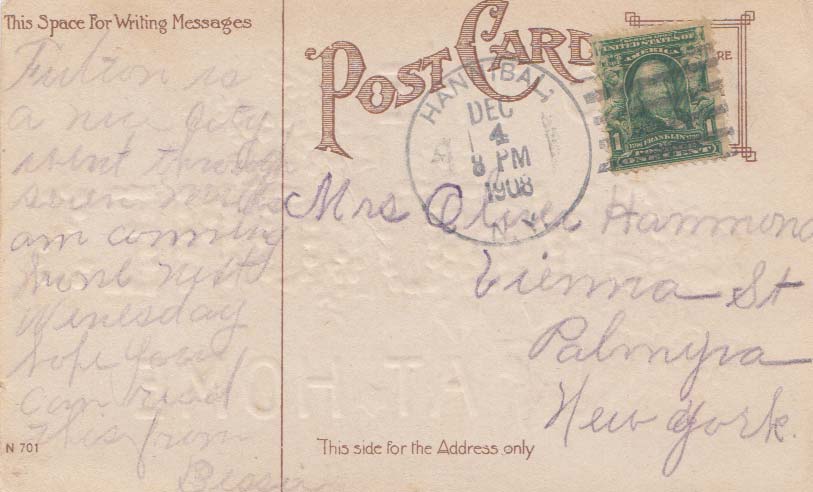 This Space For Writing Messages
POST CARD
RE
UNITED STATES OF
AMERICA
FRANKLIN
1 POSTAGE 1
ONE CENT
HANNIBAL,
DEC
4
8 PM
1908
N.Y.
Fulton is
a nice City
went through
am comming
home next
Wenesday
hope you
can read
this from
Bessie
Mrs Oliver Hammond
Vienna St
Palmyra
New York.
AT HOME
N 701
This side for the Address only